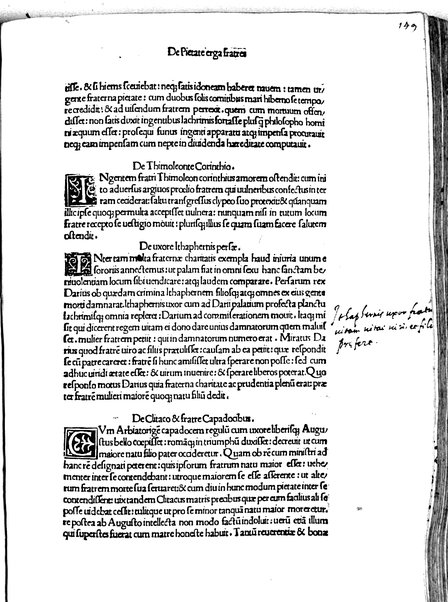 149
De Pietate erga fratrem
tisse. & si hiems seuiebat: neqʒ satis idoneam haberet nauem: tamen ur
gente fraterna pietate: cum duobus solis comitibus mari hiberno se tempo
re credidit: & ad uisendum fratrem perrexit. quem cum mortuum offen
disset: non satis duxit ingentibus lachrimis fortasse plusqʒ philosopho homi
ni æquum esset: prosequi funus ingenti apparatu atqʒ impensa procurauit
neqʒ eam impensam cum nepte in diuidenda hæreditate computauit.
De Thimoleonte Corinthio.
INgentem fratri Thimoleon corinthius amorem ostendit: cum ini
to aduersus argiuos prœlio fratrem qui uulneribus confectus in ter
ram ceciderat: saltu transgressus clypeo suo protexit: & qʒanquam
illic ipse quoqʒ permulta accepisset uulnera: nunquam nisi in tutum locum
fratre recepto se uestigio mouit: pluris qʒ illius se quam suam facere salutem
ostendit.
De uxore Ithaphernis persæ.
INter tam multa fraternæ charitatis exempla haud iniuria unum e
sororiis annectemus: ut palam fiat in omni sexu hanc sanctam be
niuolentiam locum sibi uendicare: atqʒ laudem comparare. Persarum rex
Darius ob quædam crimina Ithaphernem filiosqʒ atqʒ omnes ex eius gente
morti damnarat. Ithaphernis uxor cum ad Darii palatium profecta planctu
lachrimisqʒ omnia repleret: Darium ad commiserationem mouit. Itaqʒ mi
sit qui diceret regem uitam ei dono dare unius damnatorum quem maluis
set. mulier fratrem petit: qui in damnatorum numero erat. Miratus Da
rius quod fratrem uiro ac filiis prætulisset: causam ab ea petit: quæ respondit
se cū patre careret: fratrē si hunc amisisset ultra sperare non posse: sed cum
adhuc uiridi ætate esset: & uirum inuenire: & sperare liberos poterat. Quo
responso motus Darius quia fraterna charitate ac prudentia plenū erat: præ
ter fratrē mulieri maiorē quoqʒ natu filiū dedit.
Ithaphernis uxor fratris
uitam
De Clitaco & fratre Capadocibus.
CVm Arbiatorigē capadocem regulū cum uxore liberisqʒ Augu
stus bello cœpisset: romāqʒ in triumphū duxisset: decreuit ut cum
maiore natu filio pater occideretur. Quam ob rē cum ministri ad
hanc rē designati peterent: quis ipsorum fratrum natu maior esset: uehe
menter inter se contendebant: utroque maiorem se esse asserente: ut alte
rum fratrem morte sua seruaret: & cum diu in hunc modum pietate inter se
contendissent: uix tandem Clitacus matris precibus que per eum facilius ali se
posse uidebat cessit: tulitque ut pro se minor tanquā natu maior moreretur.
re postea ab Augusto intellecta non modo factū indoluit: uerū etiā illum
qui superstes fuerat cum matre honeste habuit. Tantū reuerentiæ & bonæ